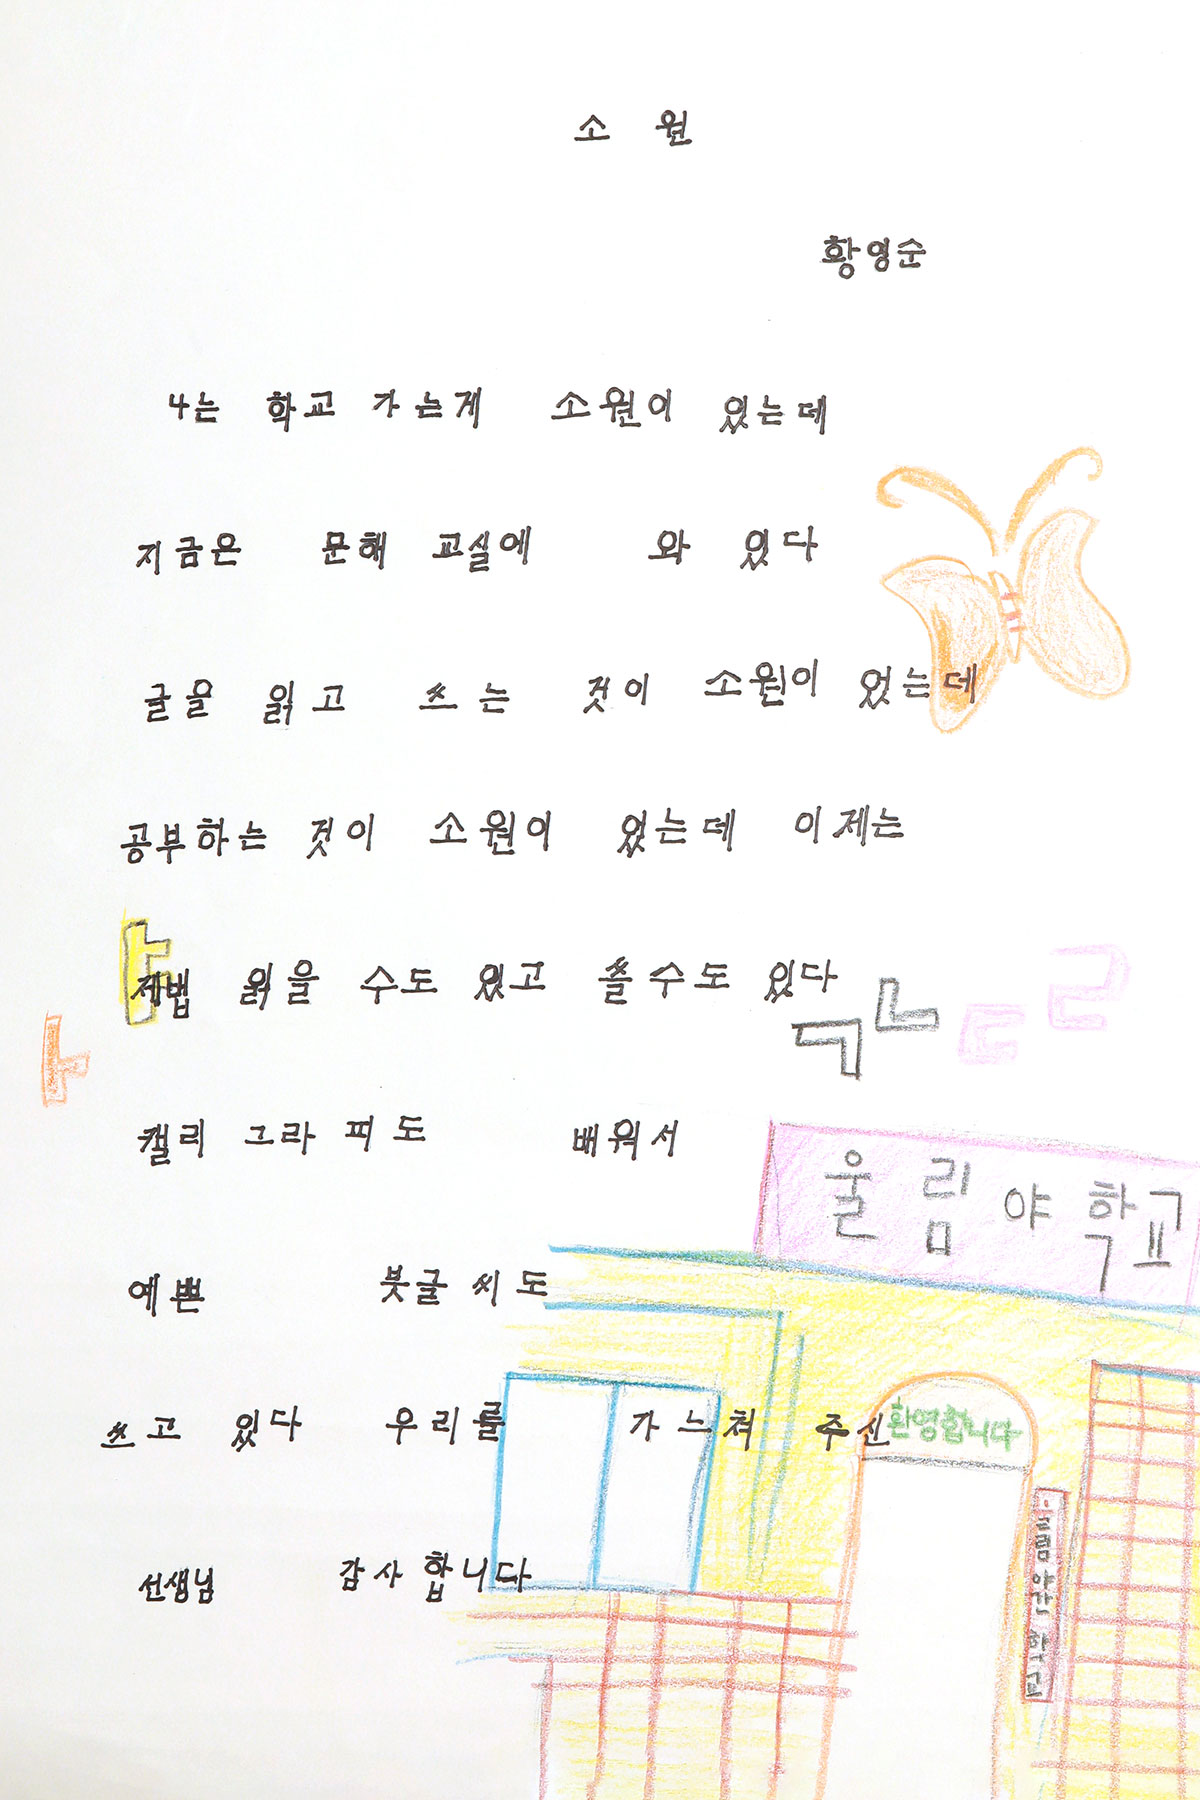 소 원
황영순
나는 학교 가는게 소원이 있는데
지금은 문해 교실에 와 있다
글을 읽고 쓰는 것이 소원이 었는데
공부하는 것이 소원이 었는데 이제는
제법 읽을 수도 있고 쓸수도 있다
캘리 그라피도 배워서
예쁜 붓글씨도
쓰고 있다 우리를 가느쳐 주신
선생님 감사합니다
ㅏ
ㅏ
ㄱㄴㄷㄹ
울림야학교
환영합니다